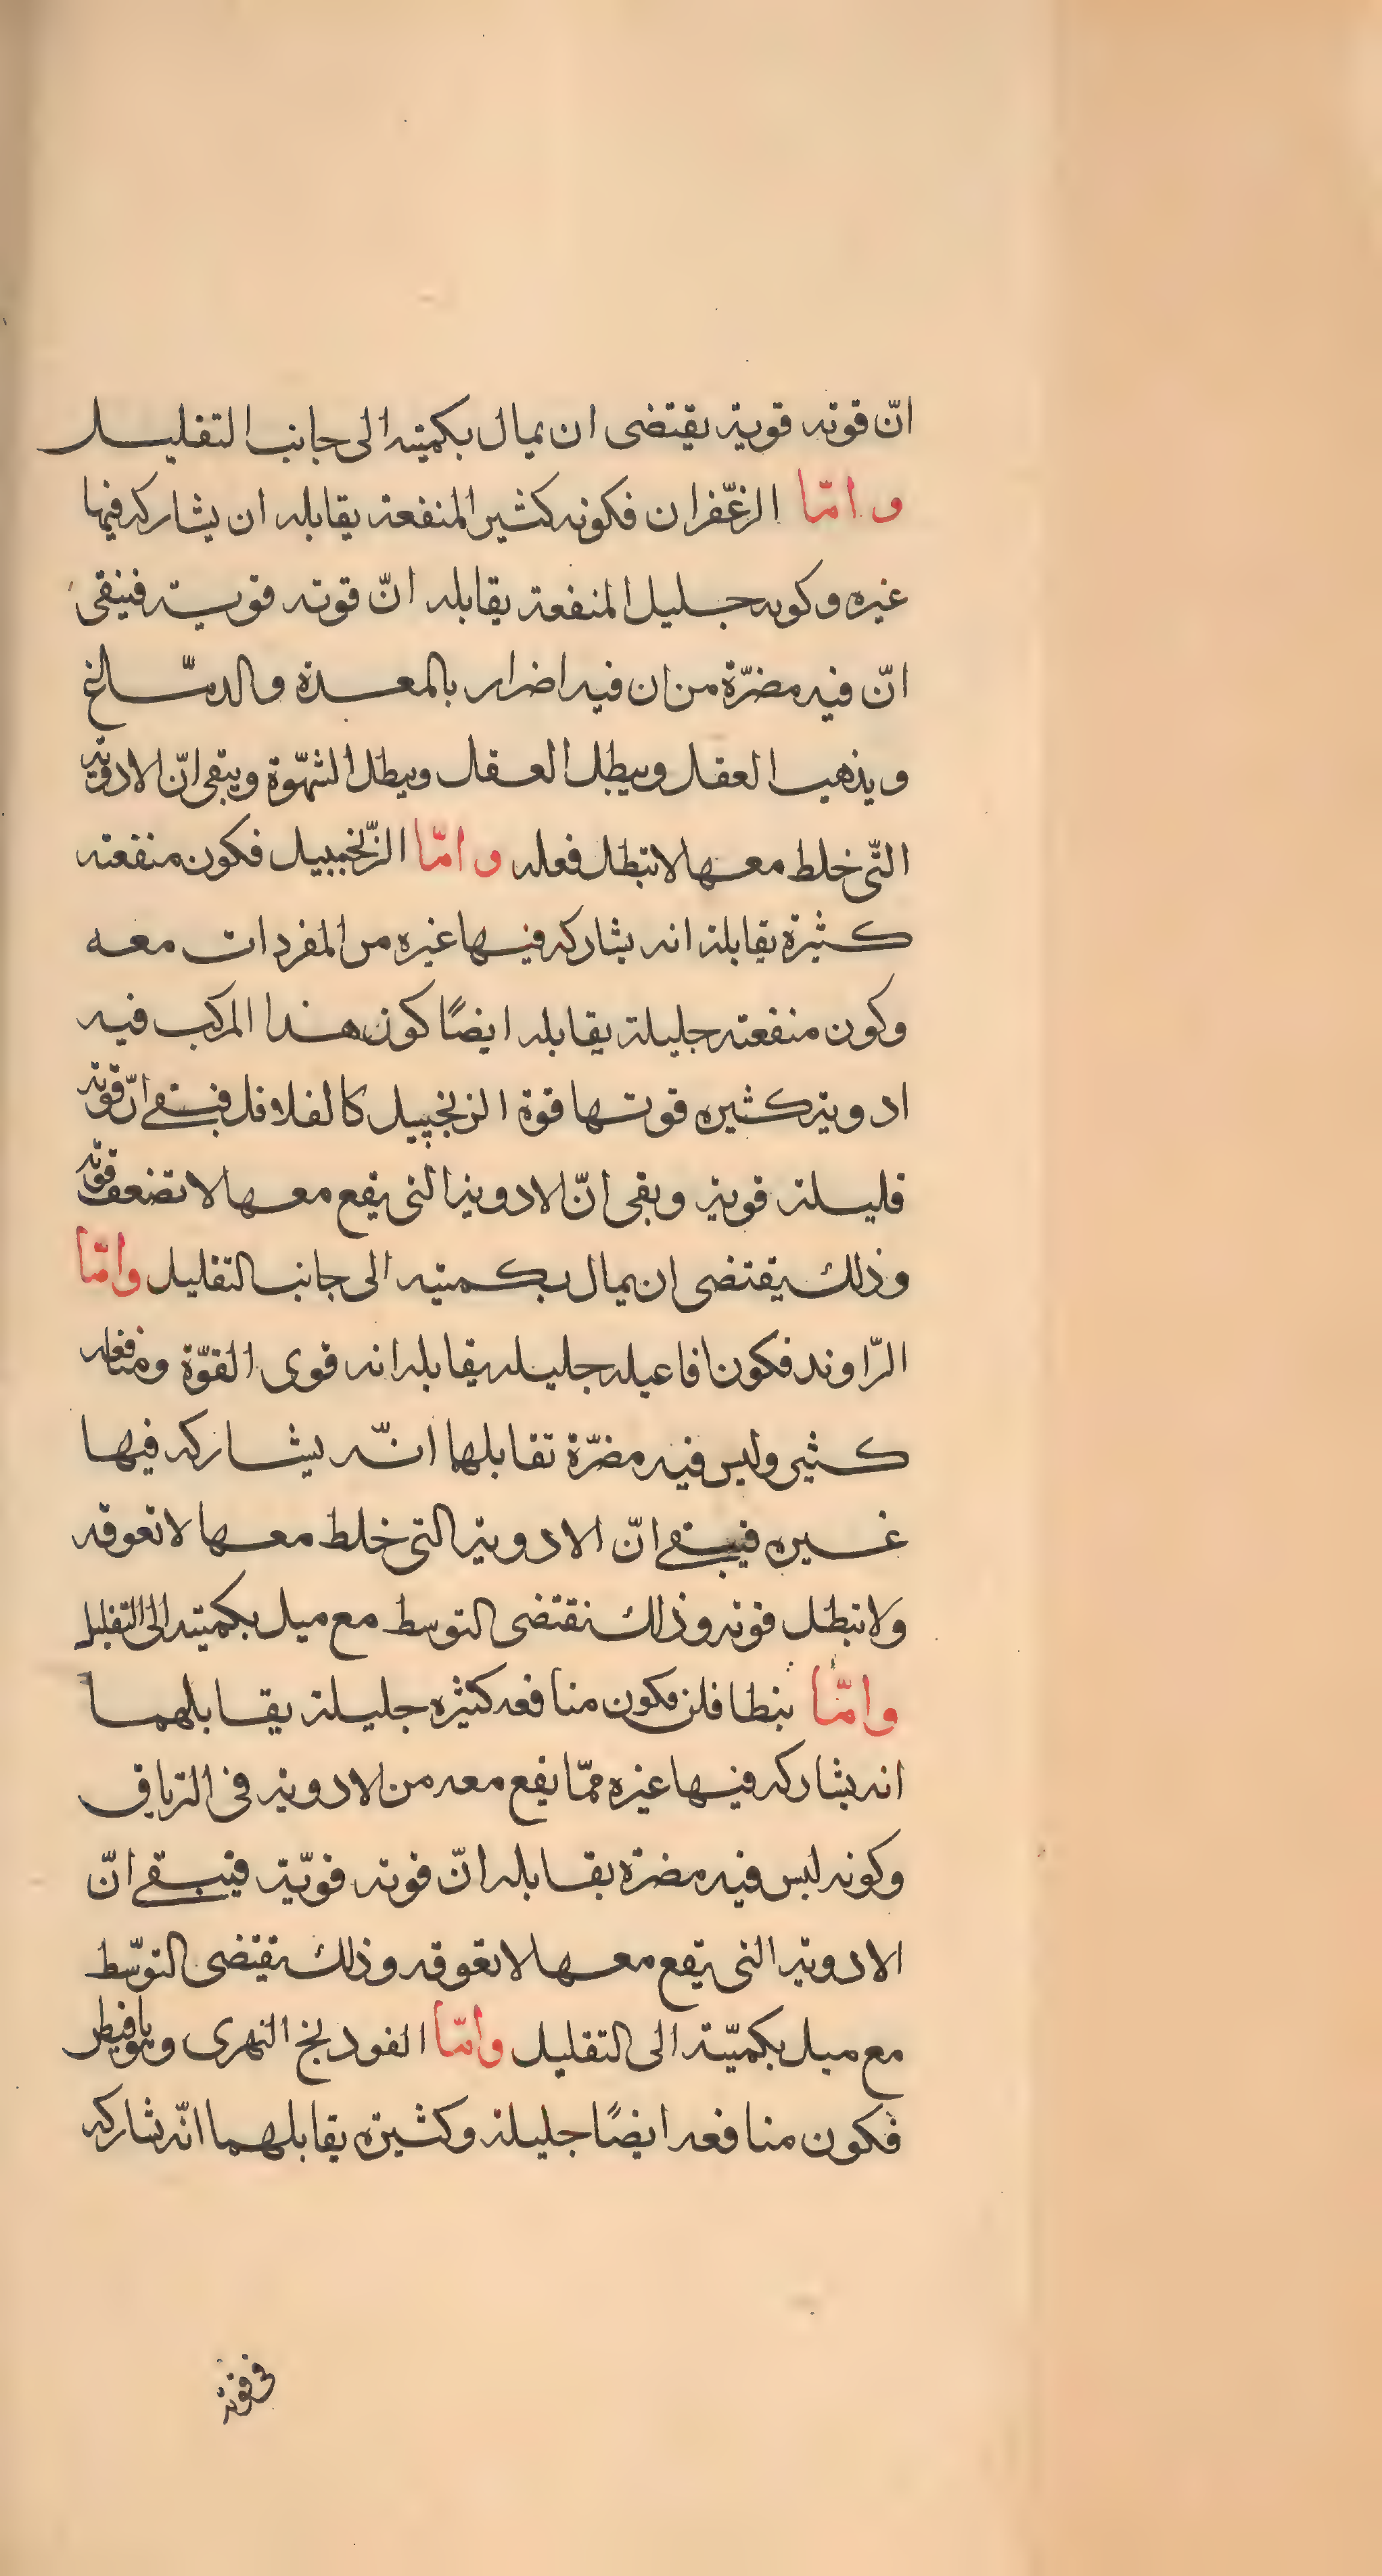 انّ قوته قوية يقتضى ان يمال بكميته الى جانب التقليل
و امّا الزعّفران فكونه كثير المنفعة يقابله ان يشاركه فيها
غيره وكونه جليل المنفعة يقابله انّ قوته قوية فينقى
انّ فيه مضرّة من ان فيه اضرار بالمعدة والدمّاغ
ويذهب العقل ويبطل العقل ويبطل الشهّوة ويبقى انّ الادوية
التّى خلط معها لا تبطل فعله و امّا الزّنجبيل فكون منفعته
كثيرة يقابله انه يشاركه فيها غيره من المفردات معه
وكون منفعته جليلة يقابله ايضًا كون هذا المركب فيه
ادوية كثيره قوتها قوة الزنجبيل كالفلافل فيبقى انّ قوته
قليلة قوية وبقى انّ الادوية التى يقع معها لا تضعف قوته
وذلك يقتضى ان يمال بكميته الى جانب التقليل وامّا
الرّاوند فكون افاعيله جليله يقابله انه قوى القوّة ومنافعه
كثير وليس فيه مضرّة تقابلها انّه يشاركه فيها
غيره فيبقى انّ الادوية التى خلط معها لا تعوقه
ولا تبطل قوته وذلك يقتضى التوسط مع ميل بكميته الى التقليل
وامّا بنطافلن فكون منافعه كثيره جليلة يقابلهما
انه يشاركه فيها غيره ممّا يقع معه من الادوية فى الترياق
وكونه ليس فيه مضرة يقابله انّ قوته قويّة فيبقى انّ
الادوية التى يقع معها لا تعوقه وذلك يقتضى التوسّط
مع ميل بكميّته الى التقليل وامّا الفودنج النهرى
فكون منافعه ايضًا جليلة وكثيرة يقابلهما انّه يشاركه
فى قوته